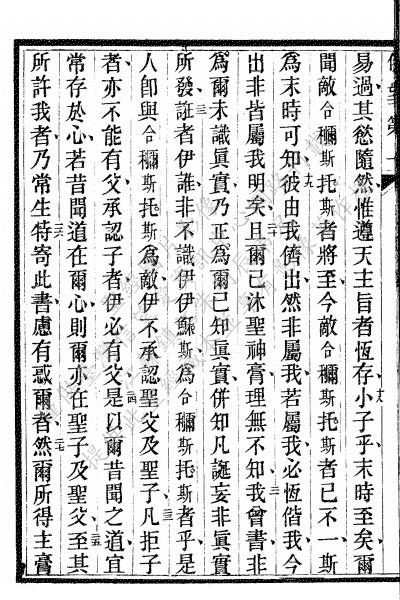 易過其慾隨然惟遵天主旨者恆存十八小子乎末時至矣爾
聞敵合穪斯托斯者將至今敵合穪斯托斯者已不一斯
爲末時可知十九彼由我儕出然非屬我若屬我必恆偕我今
出非皆屬我明矣二十且爾已沐聖神膏理無不知二一我曾書非
爲爾未識眞實乃正爲爾已知眞實併知凡誕妄非眞實
所發二二誑者伊誰非不識伊伊穌斯爲合穪斯托斯者乎是
人卽與合穪斯托斯爲敵伊不承認聖父及聖子二三凡拒子
者亦不能有父承認子者伊必有父二四是以爾昔聞之道宜
常存於心若昔聞道在爾心則爾亦在聖子及聖父二五至其
所許我者乃常生二六特寄此書慮有惑爾者二七然爾所得主膏